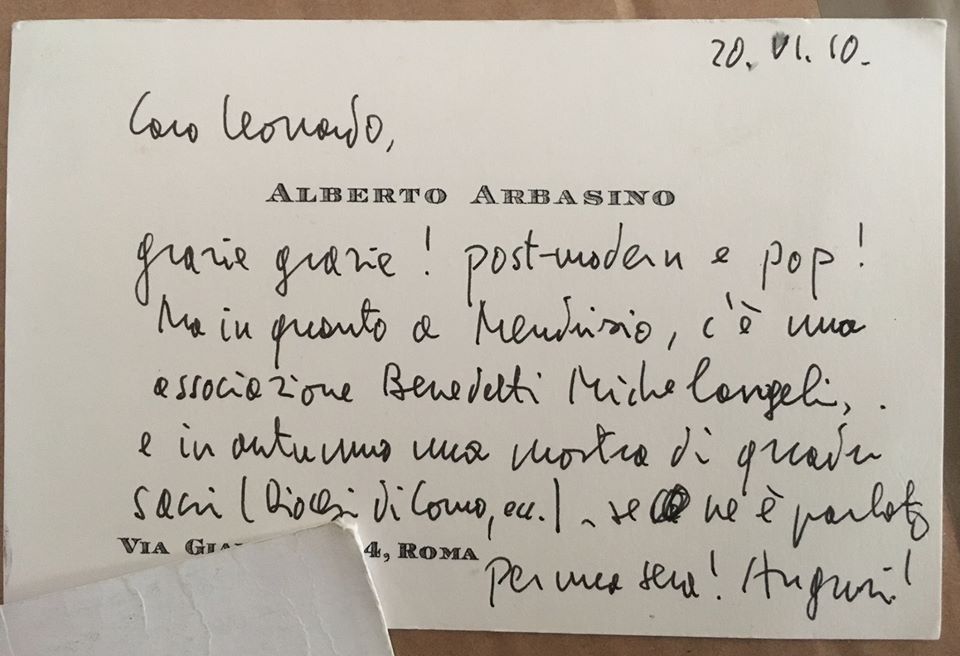 20.VI.10.
Caro Leonardo,
ALBERTO ARBASINO
grazie grazie! post-modern e pop!
Ma in quanto a Mendrisio, c'è una
associazione Benedetti Michelangeli,
e in autunno una mostra di quadri
sacri (Diocesi di Como, ecc.) - se ne è parlato
VIA GIA 4, ROMA
per una sera! Auguri!